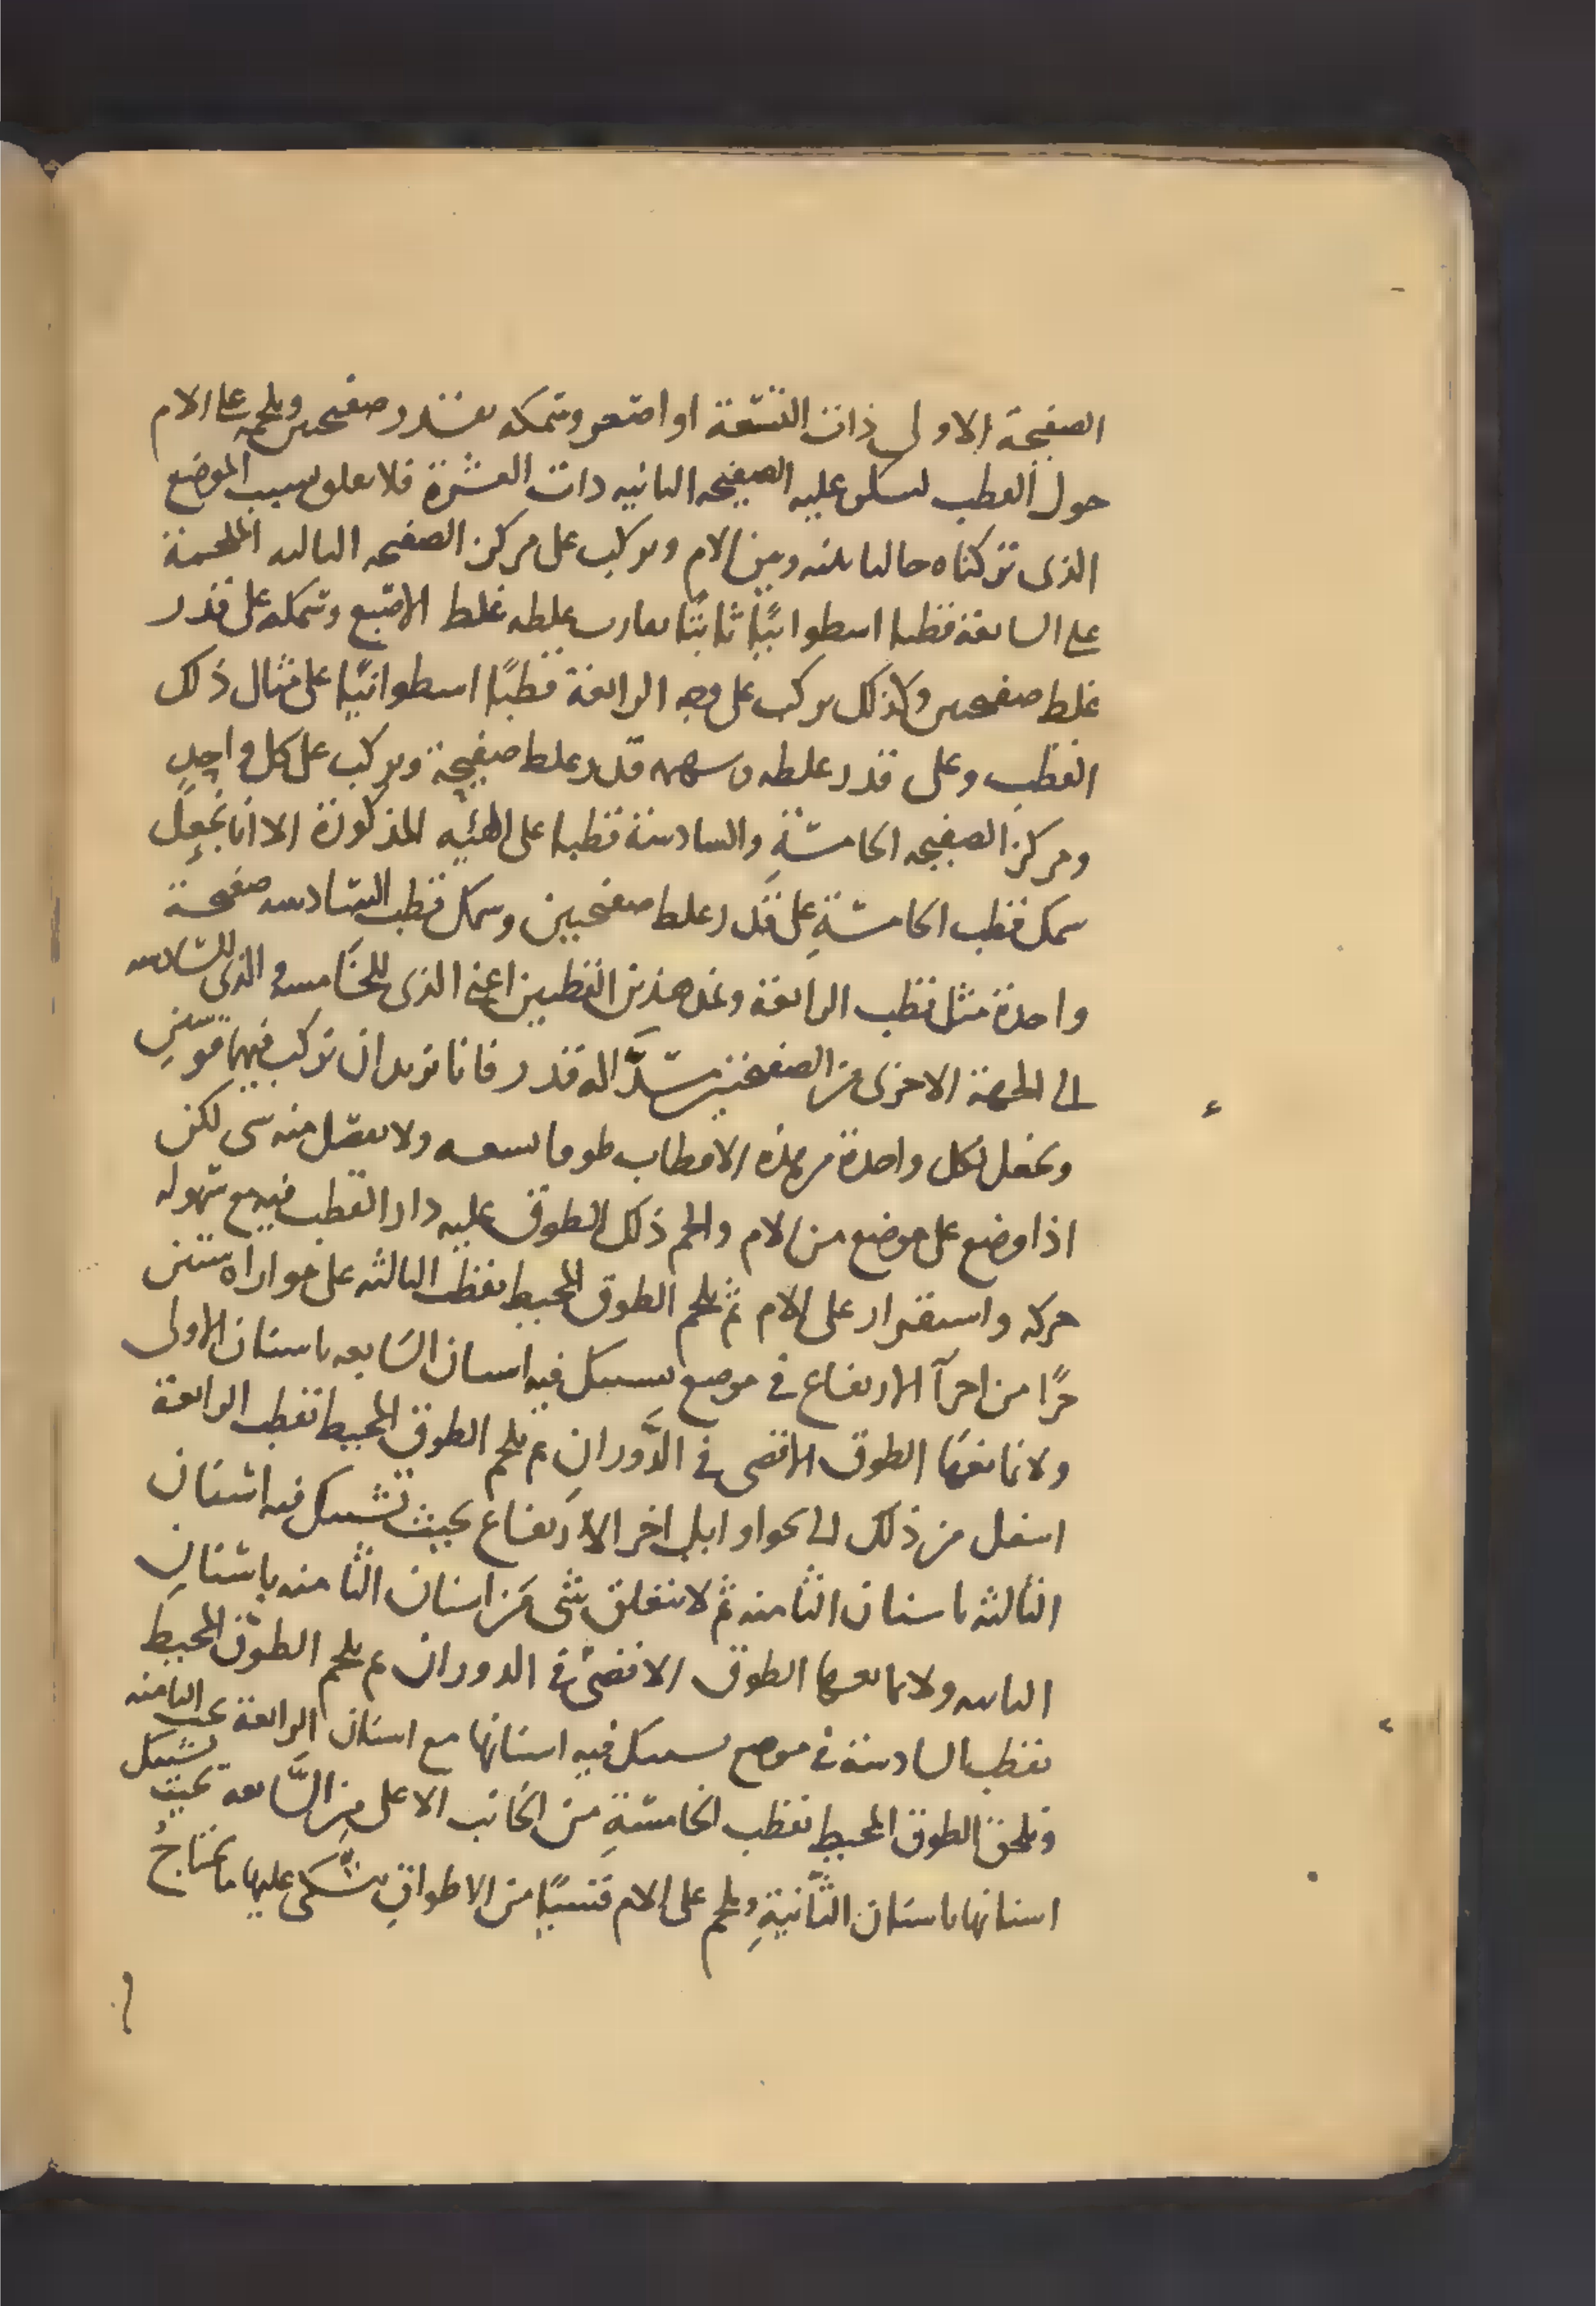 الصفيحة الاولى ذات التسعة او اصغر وسمكه بقدر صفيحتين ويلحم على الام
حول القطب لسكن عليه الصفيحه الثانيه ذات العشرة فلا بسبب الموضع
الذى تركناه خاليا بينه وبين الام ونركب على مركز الصفيحه الثالثه الملحمة
على السابعة قطبا اسطوانيًا ثابتًا يقارب غلظه غلظ الاصبع وسمكه على قدر
غلظ صفيحتين وكذلك نركب على وجه الرابعة قطبًا اسطوانيًا على مثال ذلك
القطب وعلى قدر غلظه قدر غلظ صفيحة ونركب على كل واحدٍ
ومركز الصفيحه الخامسةِ والسادسة قطبا على الهيئه المذكورة الا انا نجعل
سمك قطب الخامسةِ على قدر غلظ صفيحتين وسمك قطب السادسه صفيحة
واحدة مثل قطب الرابعة هذين القطبين اعنى الذى للخامسه والذى للسادسه
الى الجهة الاخرى من الصفيحتين قدر فانا نريد ان نركب فيهما
ونجعل لكل واحدة من هذه الاقطاب طوقا يسعه ولا يفضل منه شى لكن
اذا وضع على موضع من الام والحم ذلك الطوق عليه دار القطب فيه مع سهوله
حركه واستقرار على الام ثم يلحم الطوق المحيط بقطب الثالثه على موازاه ستين
جزًا من اجزآ الارتفاع فى موضع فيه اسنان السابعه باسنان الاولى
ولا تمانعها الطوق الاقصى فى الدَّورانِ ثم يلحم الطوق المحيط بقطب الرابعة
اسفل من ذلك الى نحو اوايل اخر الارتفاع بحيث تشتبك فيه اسنان
الثالثه باسنان الثامنه ثم لا يتعلق شى من اسنان الثامنه باسنان
الثانيه ولا تمانعها الطوق الاقصى فى الدوران ثم يلحم الطوق المحيط
بقطب السادسة فى موضع فيه اسنانها مع اسنان الرابعة تحت الثامنه
ونلحق الطوق المحيط بقطب الخامسةِ من الجانب الاعلى من السَّابعة بحيث تشتبك
اسنانها باسنان الثَّانيةِ ويلحم على الام من الاطواقِ عليها ما نحتاجُ